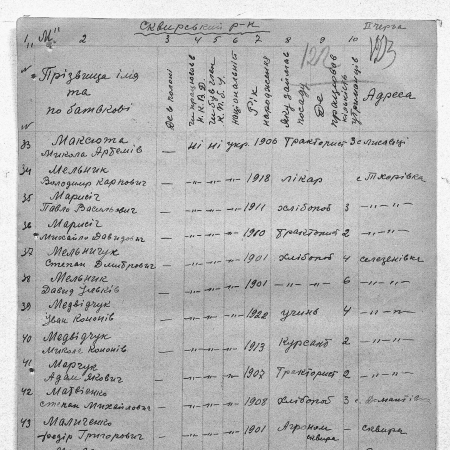 Сквирський р-н
II черга
1 „М" 2 3 4 5 6 7 8 9 10
Прізвище імя
та
по батькові
Де в полоні
чи працював в Н.К.В.Д.
національність
Рік народження
яку займав посаду
Де працював
кількість утриманців
Адреса
33 Максюта
Микола Артемів — ні ні укр. 1906 Тракторист 3
34 Мельник
Володимир Карпович — -„- -„- -„- 1918 лікар с Тхорівка
35 Марисіч
Павло Васильович — -„- -„- -„- 1911 хлібороб 3 -„- -„-
36 Марисіч
Михайло Давидович — -„- -„- -„- 1910 Тракторист 2 -„- -„-
37 Мельничук
Степан Дмитрович — -„- -„- -„- 1901 хлібороб 4 селезенівка
38 Мельник
Давид — -„- -„- -„- 1901 -„- 6 -„- -„-
39 Медвідчук
Іван Кононів — -„- -„- -„- 1922 учинь 4 -„- -„-
40 Медвідчук
Микола Кононів — -„- -„- -„- 1913 Курсант 2 -„- -„-
41 Марчук
Адам Якович — -„- -„- -„- 1907 Тракторист 2 -„- -„-
42 Матвієнко
Степан Михайлович — -„- -„- -„- 1908 хлібороб 3
43 Маличенко
Федір Григорович — -„- -„- -„- 1901 Агроном сквира — сквира